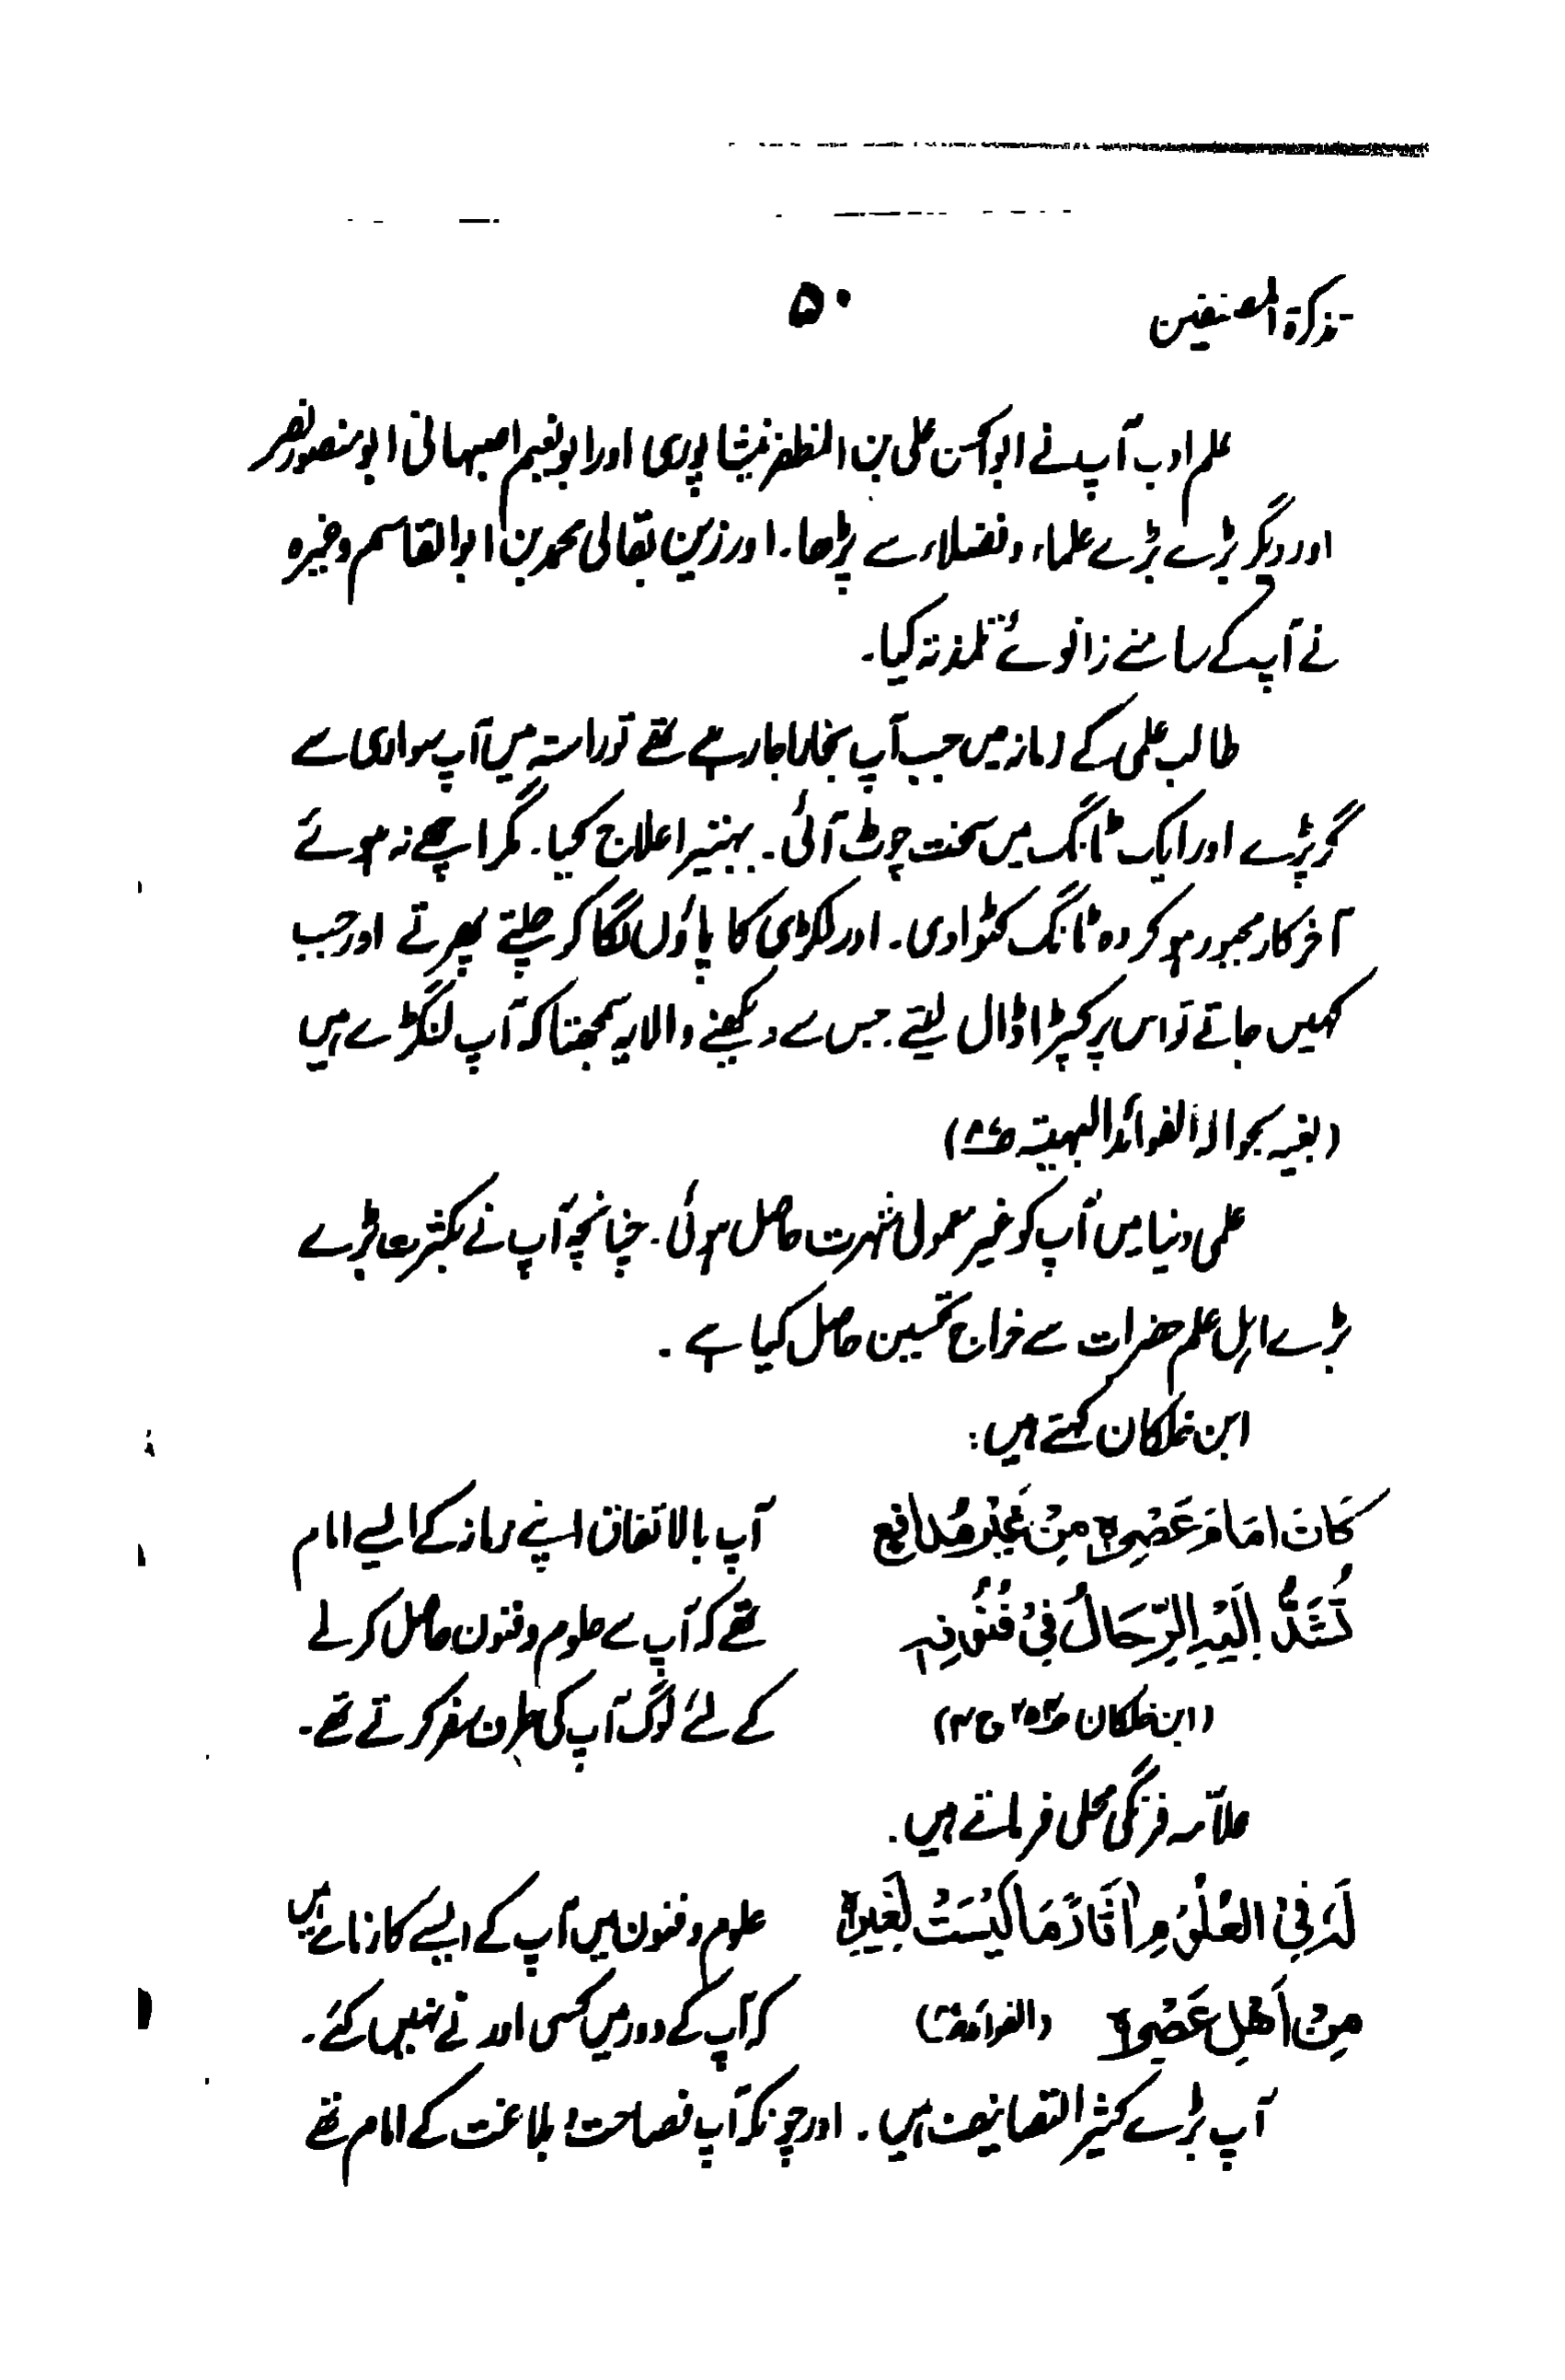 تذکرۃ المصنفین
۵۰
علم ادب آپ نے ابوالحسن علی بن المظفر نیشاپوری اور ابونعیم اصبہانی ابو منصور نصر
اور دیگر بڑے بڑے علماء و فضلاء سے پڑھا۔ اور زین بقالی محمد بن ابوالقاسم وغیرہ
نے آپ کے سامنے زانوئے تلمذ تہ کیا۔
طالب علمی کے زمانہ میں جب آپ بخارا جا رہے تھے تو راستہ میں آپ سواری سے
گر پڑے اور ایک ٹانگ میں سخت چوٹ آئی۔ بہتیرا علاج کیا۔ مگر اچھے نہ ہوئے
آخر کار مجبور ہو کر وہ ٹانگ کٹوا دی۔ اور لکڑی کا پاؤں لگا کر چلتے پھرتے اور جب
کہیں جاتے تو اس پر کپڑا ڈال لیتے۔ جس سے دیکھنے والا یہ سمجھتا کہ آپ لنگڑے ہیں
(بغیہ بحوالہ الفوائد البہیتہ)
علمی دنیا میں آپ کو غیر معمولی شہرت حاصل ہوئی۔ چنانچہ آپ نے بکثرت بڑے
بڑے اہل علم حضرات سے خراج تحسین حاصل کیا ہے۔
ابن خلکان کہتے ہیں:
كَانَ اِمَامَ عَصْرِهٖ مِنْ غَيْرِ مُدَافِعٍ
تُشَدُّ اِلَيْهِ الرِّحَالُ فِيْ فُنُوْنِهٖ
(ابن خلکان ص۲۵۴ ج۴)
آپ بالاتفاق اپنے زمانہ کے ایسے امام
تھے کہ آپ سے علوم و فنون حاصل کرنے
کے لئے لوگ آپ کی طرف سفر کرتے تھے۔
علامہ فرنگی محلی فرماتے ہیں۔
لَهٗ فِي الْعُلُوْمِ اٰثَارٌ مَا لَيْسَتْ لِغَيْرِهٖ
مِنْ اَهْلِ عَصْرِهٖ (الفوائد)
علوم و فنون میں آپ کے ایسے کارنامے ہیں
کہ آپ کے دور میں کسی اور نے نہیں کئے۔
آپ بڑے کثیر التصانیف ہیں۔ اور چونکہ آپ فصاحت و بلاغت کے امام تھے